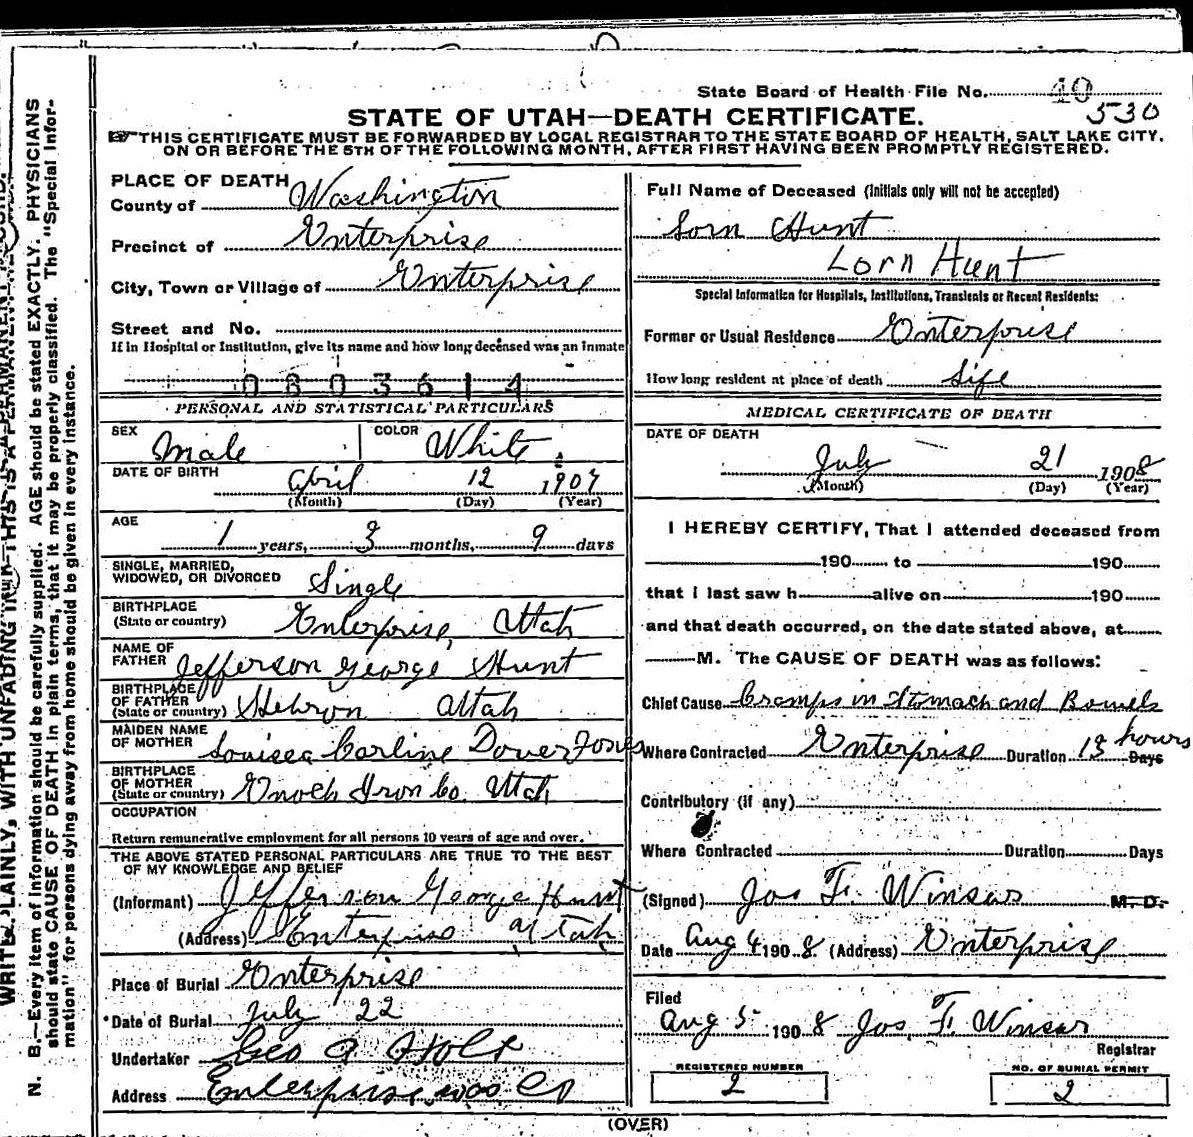 State Board of Health File No. 40
530
STATE OF UTAH—DEATH CERTIFICATE.
THIS CERTIFICATE MUST BE FORWARDED BY LOCAL REGISTRAR TO THE STATE BOARD OF HEALTH, SALT LAKE CITY,
ON OR BEFORE THE 5TH OF THE FOLLOWING MONTH, AFTER FIRST HAVING BEEN PROMPTLY REGISTERED.
WRITE PLAINLY, WITH UNFADING INK—THIS IS A PERMANENT
N. B.—Every item of information should be carefully supplied. AGE should be stated EXACTLY. PHYSICIANS
should state CAUSE OF DEATH in plain terms, that it may be properly classified. The "Special Infor-
mation" for persons dying away from home should be given in every instance.
PLACE OF DEATH
County of Washington
Precinct of Enterprise
City, Town or Village of Enterprise
Street and No.
If in Hospital or Institution, give its name and how long deceased was an inmate
0803614
PERSONAL AND STATISTICAL PARTICULARS
SEX Male COLOR White
DATE OF BIRTH April 12 1907
(Month) (Day) (Year)
AGE
1 years, 3 months, 9 days
SINGLE, MARRIED,
WIDOWED, OR DIVORCED Single
BIRTHPLACE
(State or country) Enterprise, Utah
NAME OF
FATHER Jefferson George Hunt
BIRTHPLACE
OF FATHER
(State or country) Hebron Utah
MAIDEN NAME
OF MOTHER Louisea Carline Dover Jones
BIRTHPLACE
OF MOTHER
(State or country) Enoch Iron Co. Utah
OCCUPATION
Return remunerative employment for all persons 10 years of age and over.
THE ABOVE STATED PERSONAL PARTICULARS ARE TRUE TO THE BEST
OF MY KNOWLEDGE AND BELIEF
(Informant) Jefferson George Hunt
(Address) Enterprise Utah
Place of Burial Enterprise
Date of Burial July 22
Undertaker Geo A Holt
Address Enterprise
Full Name of Deceased (Initials only will not be accepted)
Lorn Hunt
Lorn Hunt
Special Information for Hospitals, Institutions, Transients or Recent Residents:
Former or Usual Residence Enterprise
How long resident at place of death Life
MEDICAL CERTIFICATE OF DEATH
DATE OF DEATH
July 21 1908
(Month) (Day) (Year)
I HEREBY CERTIFY, That I attended deceased from
190 to 190
that I last saw h alive on 190
and that death occurred, on the date stated above, at
M. The CAUSE OF DEATH was as follows:
Chief Cause Cramps in Stomach and Bowels
Where Contracted Enterprise Duration 13 hours Days
Contributory (if any)
Where Contracted Duration Days
(Signed) Jos F. Winsor M. D.
Date Aug 4 1908. (Address) Enterprise
Filed
Aug 5 1908 Jos. F. Winsor
Registrar
REGISTERED NUMBER
2
NO. OF BURIAL PERMIT
2
(OVER)